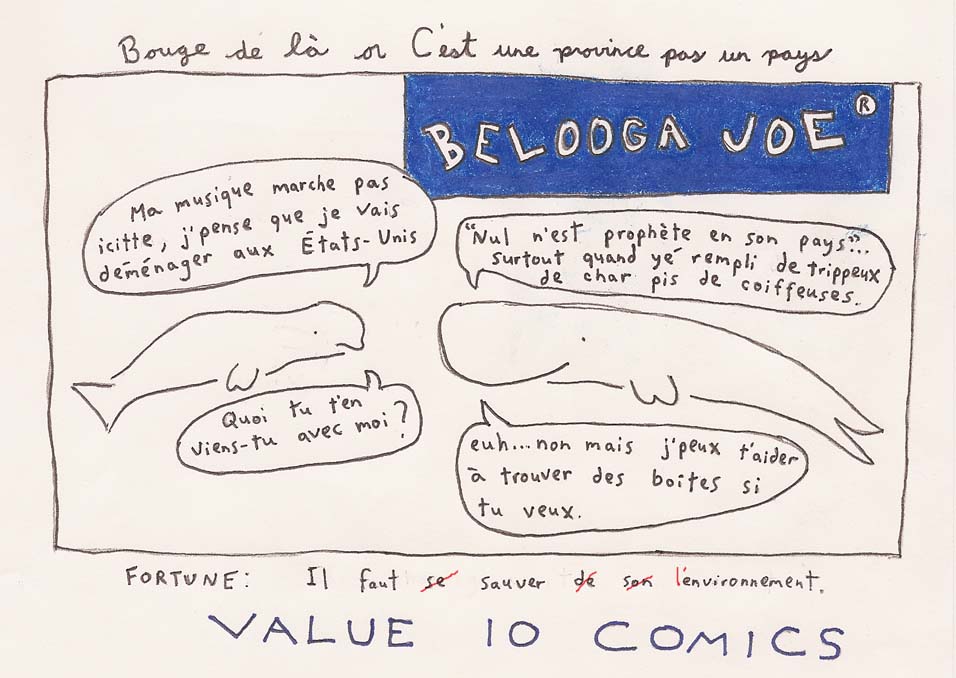 Bouge de là or C'est une province pas un pays
BELOOGA JOE®
Ma musique marche pas
icitte, j'pense que je vais
déménager aux États-Unis
"Nul n'est prophète en son pays"...
surtout quand yé rempli de trippeux
de char pis de coiffeuses.
Quoi tu t'en
viens-tu avec moi?
euh...non mais j'peux t'aider
à trouver des boîtes si
tu veux.
FORTUNE: Il faut se sauver de son l'environnement.
VALUE 10 COMICS